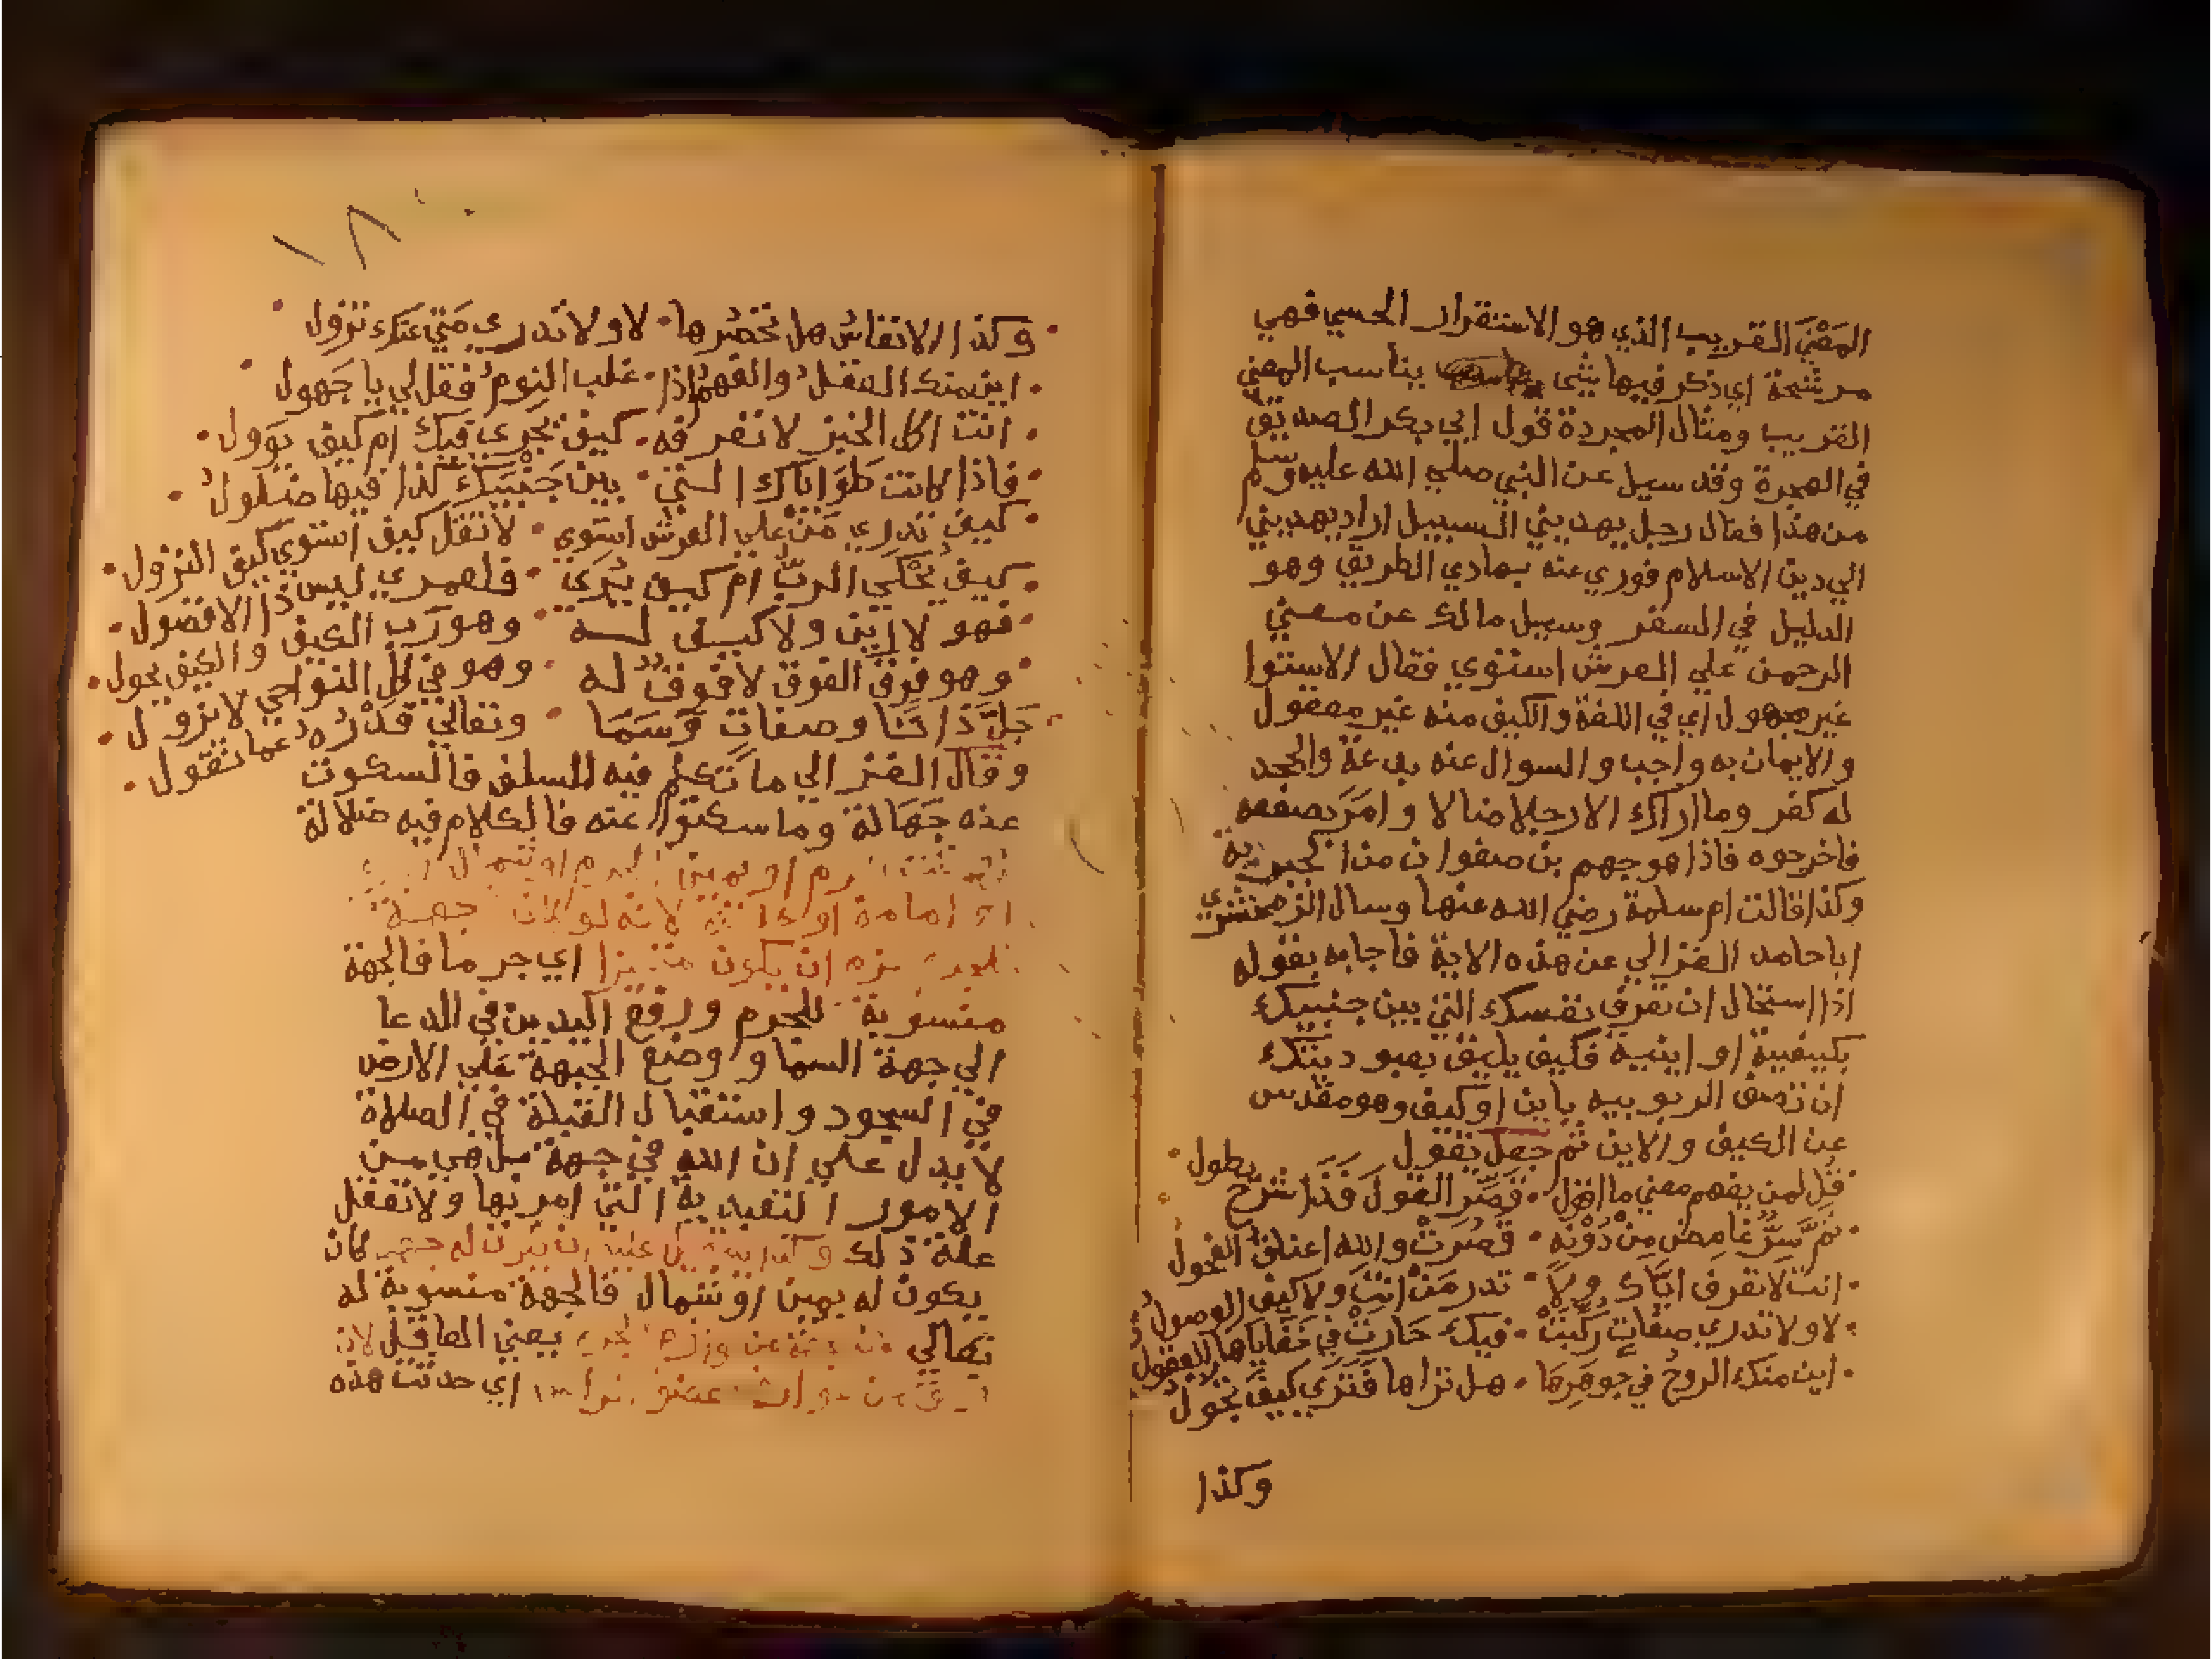 المَعْنَي القريب الذي هو الاستقرار الحسي فهي
مرشحة اي ذكر فيها شي يناسب المعني
القريب ومثال المجردة قول ابي بكر الصديق
في الهجرة وقد سيل عن النبي صلي الله عليه وسلم
من هذا فقال رجل يهديني السبيل اراد يهديني
الي دين الاسلام فوري عنه بهادي الطريق وهو
الدليل في السفر وسيل مالك عن معني
الرحمن علي العرش استوي فقال الاستوا
غير مجهول اي في اللغة والكيف منه غير معقول
والايمان به واجب والسوال عنه بدعة والجحد
له كفر وما اراك الا رجلا ضالا وامَرَ بصفعه
فاخرجوه فاذا هو جهم بن صفوان من الجبرية
وكذا قالت ام سلمة رضي الله عنها وسال الزمخشري
اباحامد الغزالي عن هذه الاية فاجابه بقوله
اذا استحال ان تعرف نفسك التي بين جنبيك
بكيفية او اينية فكيف يليق بعبوديتك
ان تصف الربوبيه باين او كيف وهو مقدس
عن الكيف والاين ثم جعل يقول
قل لمن يفهم معني ما اقول • قَصِّر القول فَذَا شَرْحٌ يطول
• ثَمَّ سِرٌّ غَامِضٌ مِنْ دُوْنِهِ • قَصُرَتْ والله اعناقُ الفحول
• انت لا تعرف اياك ولا • تدر مَنْ انتَ ولا كيف الوصولُ
• لا ولا تدري صفاتٍ رُكِّبَتْ • فيك حَارتْ في خَفَاياهَا العقول
• اين منك الروحُ في جوهَرِهَا • هل تراها فَتَرَي كيفَ تجُول
وكذا
١٨٠
• وكذا الانفاسُ هل تحصُرها • لا ولا تدري مَتي عنك تزول
• اين منك العقلُ والفهمُ اذا • غلب النومُ فقل لي يا جَهول
• انت اكل الخبز لا تعرفه • كيف يجري فيك ام كيف يوول
• فاذا كانت طَوَاياكَ التي • بين جَنْبَيكَ كذا فيها ضلولُ
• كيف تدري مَنْ علي العرش استوي • لا تقل كيف استوي كيف النزول
• كيفَ يُحْكَي الربُّ ام كيف يُرَي • فلعمري ليس ذا الا فضول
• فهو لا اين ولا كيف له • وهو رَب الكيف والكيف يحول
• وهو فوق الفوق لا فوقٌ له • وهو في كل النواحي لا يزول
جَلَّ ذاتًا وصفاتٍ وَسَمَا • وتعالي قَدْرُهُ عما تقول
وقال الغزالي ما تكلم فيه السلف فالسكوت
عنه جَهَالة وما سكتوا عنه فالكلام فيه ضلالة
او يمين
امامه او لانه لو كان جهة
ان يكون متحيزا اي جرما فالجهة
منسوبة للجرم ورفع اليدين في الدعا
الي جهة السما و وضع الجبهة علي الارض
في السجود واستقبال القبلة في الصلاة
لا يدل علي ان الله في جهة بل هي من
الامور التعبدية التي امر بها ولا تعقل
علة ذلك وكذا عليه ان له كان
يكون له يمين او شمال فالجهة منسوبة له
تعالي يعني العاقل لان
اي حدثت هذه